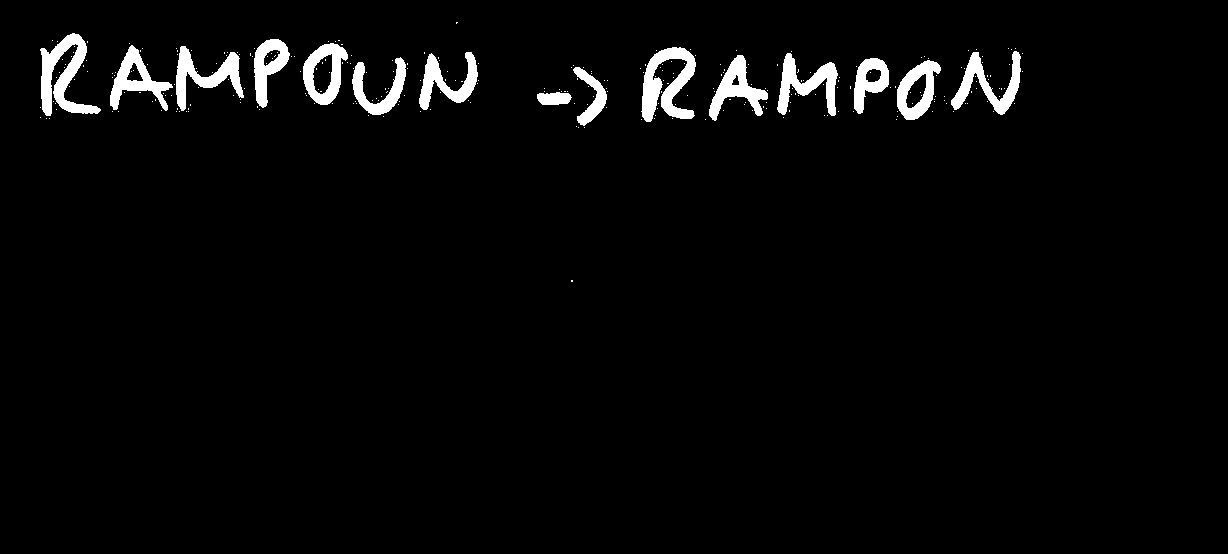 RAMPOUN -> RAMPON